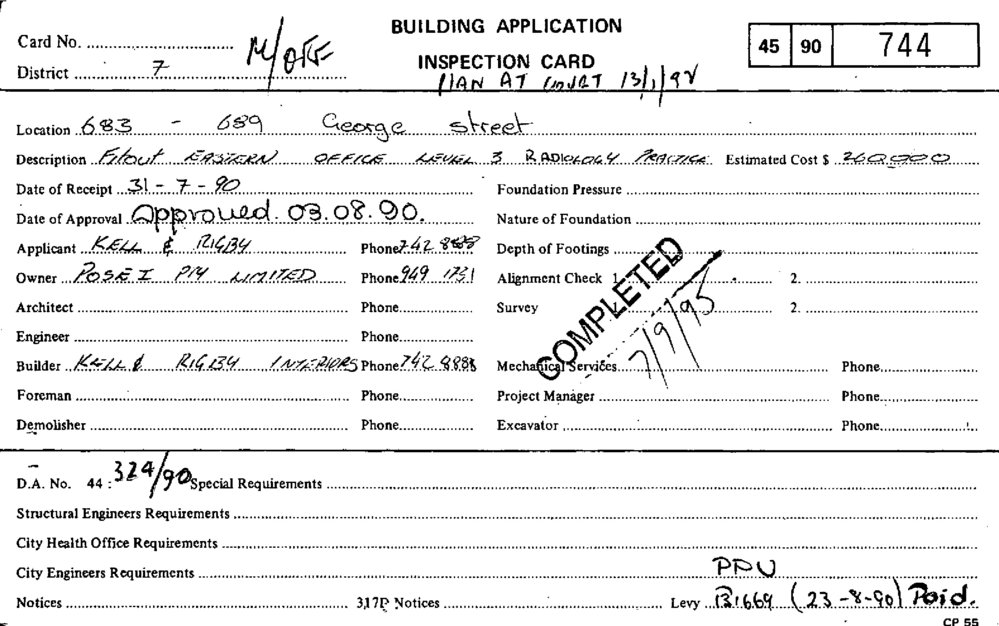 BUILDING APPLICATION
INSPECTION CARD
Card No.
District 7
45 90 744
PLAN AT COURT 13/1/98
Location 683 - 689 George street
Description Fitout EASTERN OFFICE LEVEL 3 RADIOLOGY PRACTICE Estimated Cost $ 260000
Date of Receipt 31 - 7 - 90 Foundation Pressure
Date of Approval Approved. 03.08.90. Nature of Foundation
Applicant KELL & RIGBY Phone 742 8888 Depth of Footings
Owner POSE I P/Y LIMITED Phone 949 1731 Alignment Check 1. 2.
Architect Phone Survey 1. 2.
COMPLETED
7/9/95
Engineer Phone
Builder KELL & RIGBY INTERIORS Phone 742 8888 Mechanical Services Phone
Foreman Phone Project Manager Phone
Demolisher Phone Excavator Phone
D.A. No. 44 : 324/90 Special Requirements
Structural Engineers Requirements
City Health Office Requirements
City Engineers Requirements PPU
Notices 317P Notices Levy B1669 (23-8-90) Paid.
CP 55